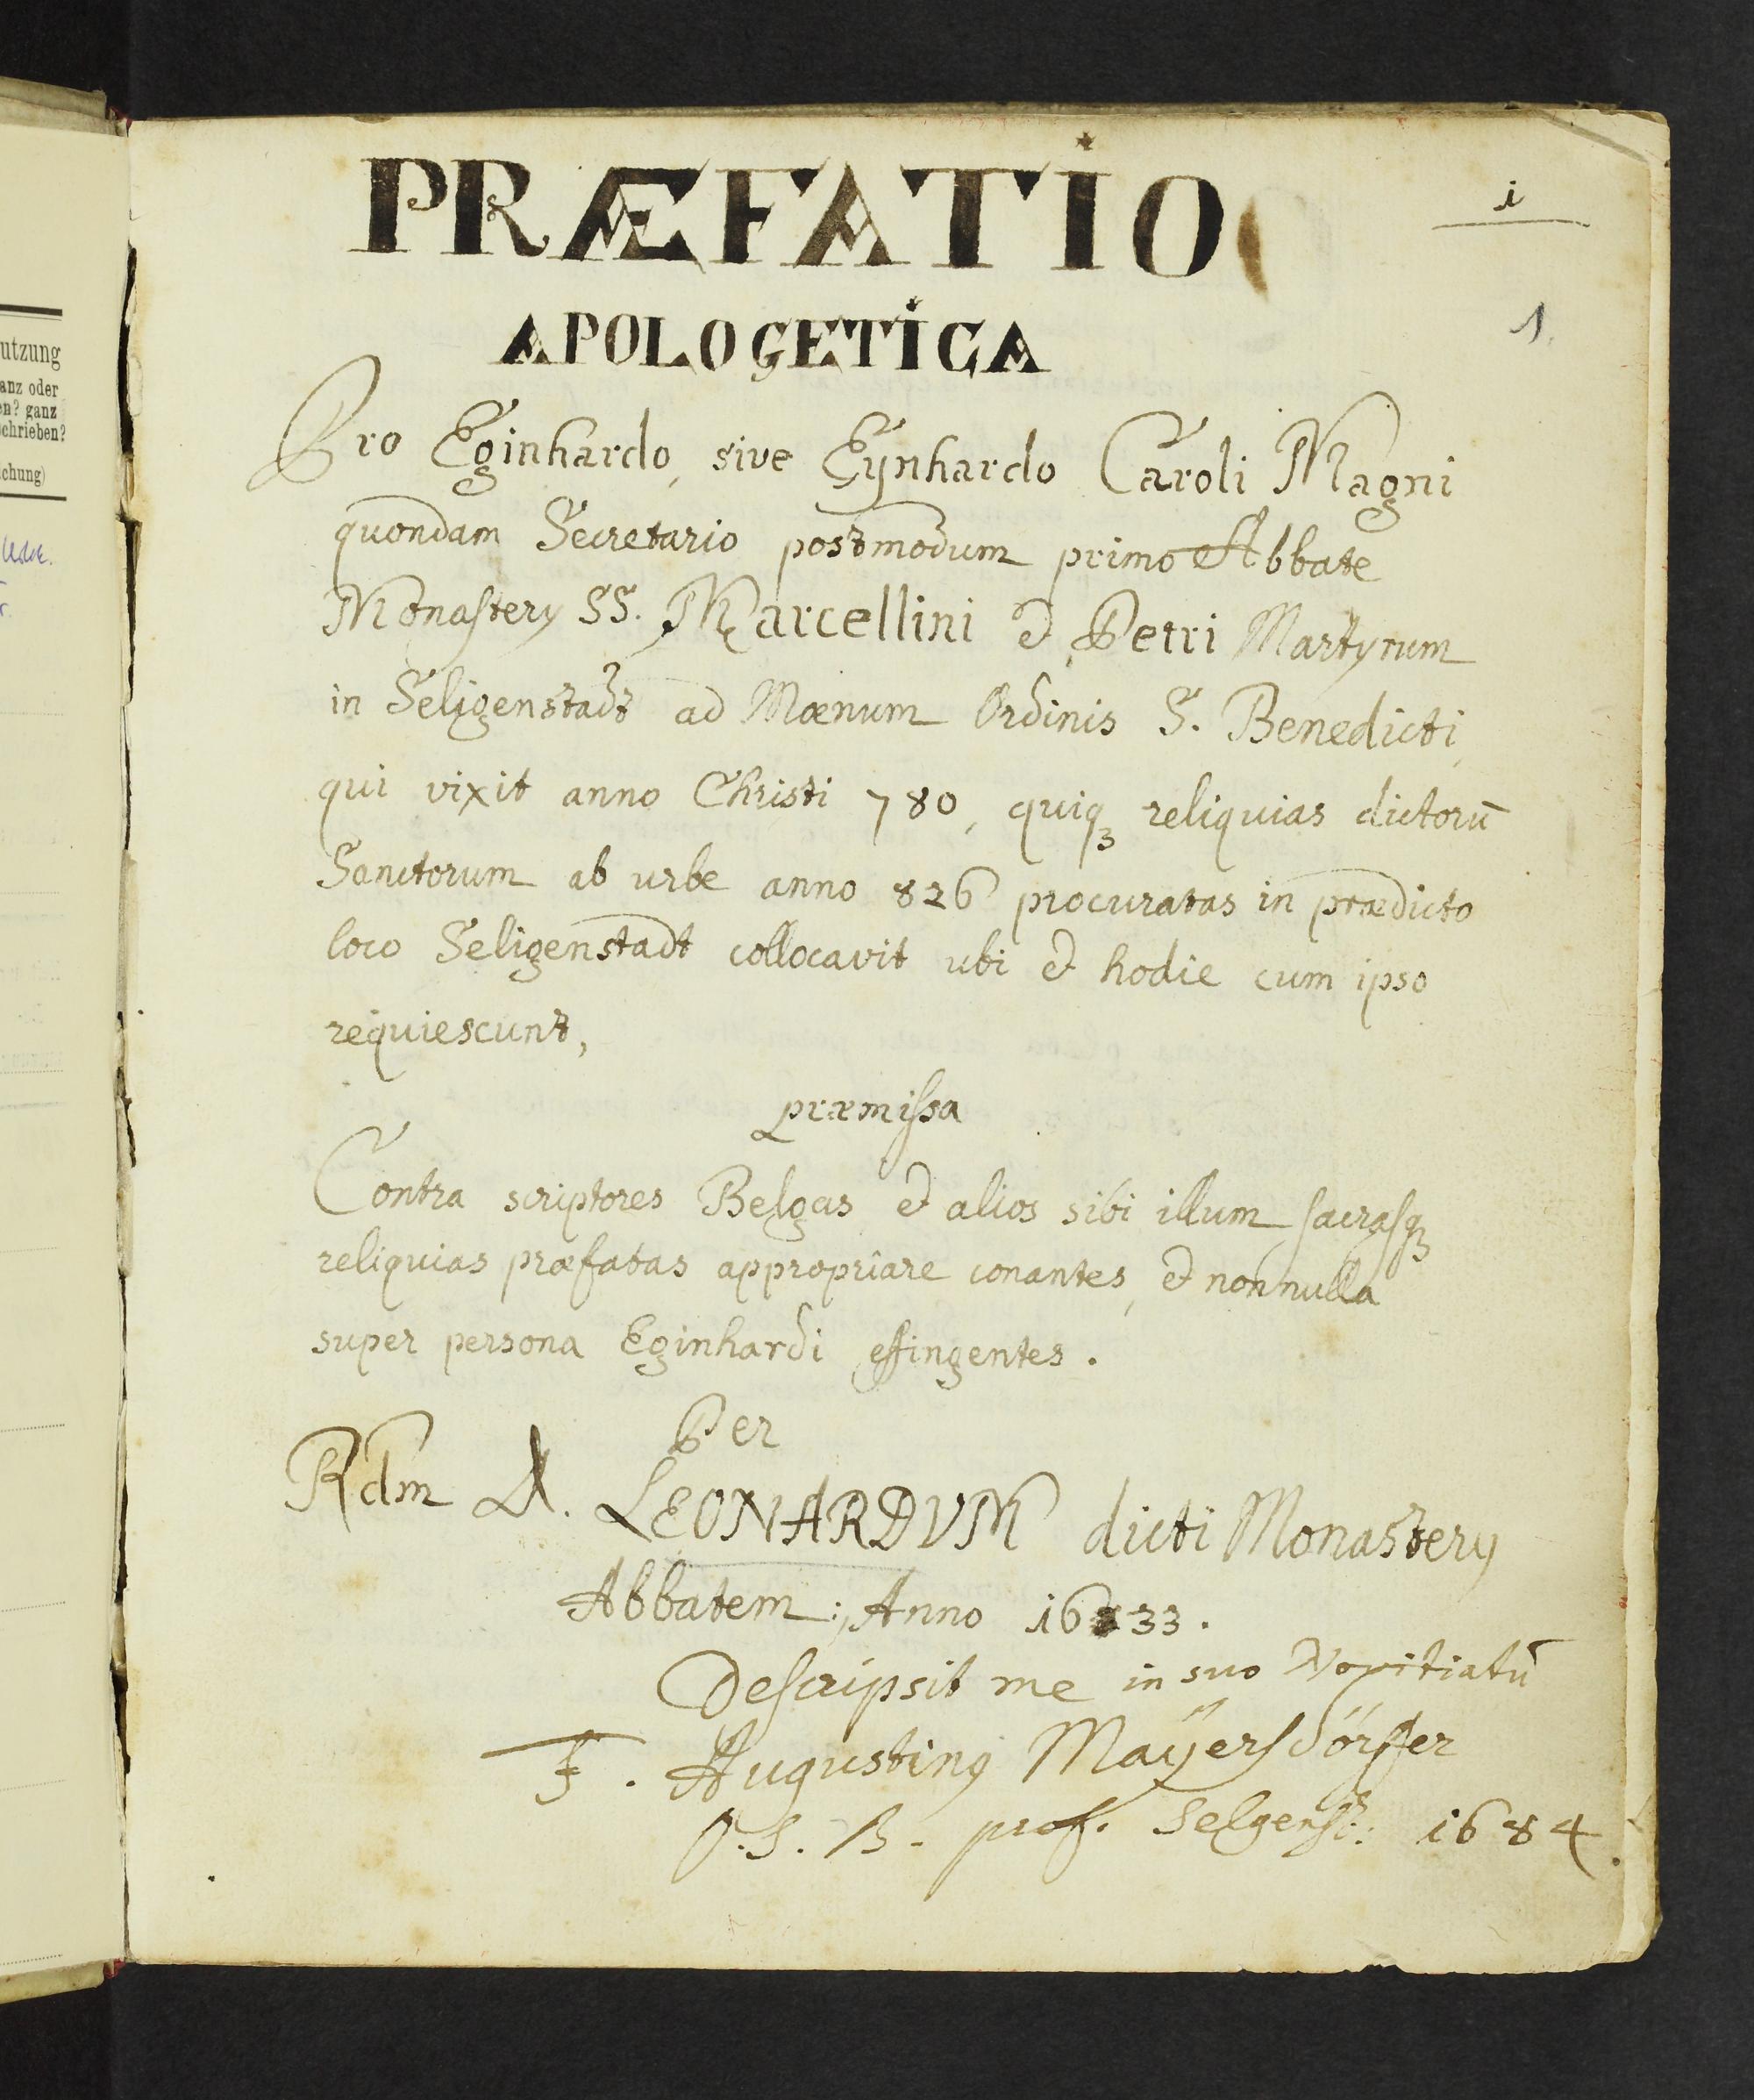 PRÆFATIO
i
1.
APOLOGETICA
Pro Eginhardo, sive Eÿnhardo Caroli Magni
quondam Secretario postmodum primo Abbate
Monastery SS. Marcellini et Petri Martyrum
in Seligenstadt ad Mœnum Ordinis S. Benedicti,
qui vixit anno Christi 780, quiqꝫ reliquias dictorū
Sanctorum ab urbe anno 826 procuratas in prædicto
loco Seligenstadt collocavit ubi et hodie cum ipso
requiescunt,
præmissa
Contra scriptores Belgas et alios sibi illum sacrasqꝫ
reliquias præfatas appropriare conantes, et nonnulla
super persona Eginhardi effingentes.
Per
Rdm D. LEONARDVM dicti Monastery
Abbatem; Anno 1633.
Descripsit me in suo Novitiatū
F. Augustinꝯ Maÿersdörffer
O.S.B. prof. Selgenst: 1684.
utzung
anz oder
en? ganz
schrieben?
ichung)